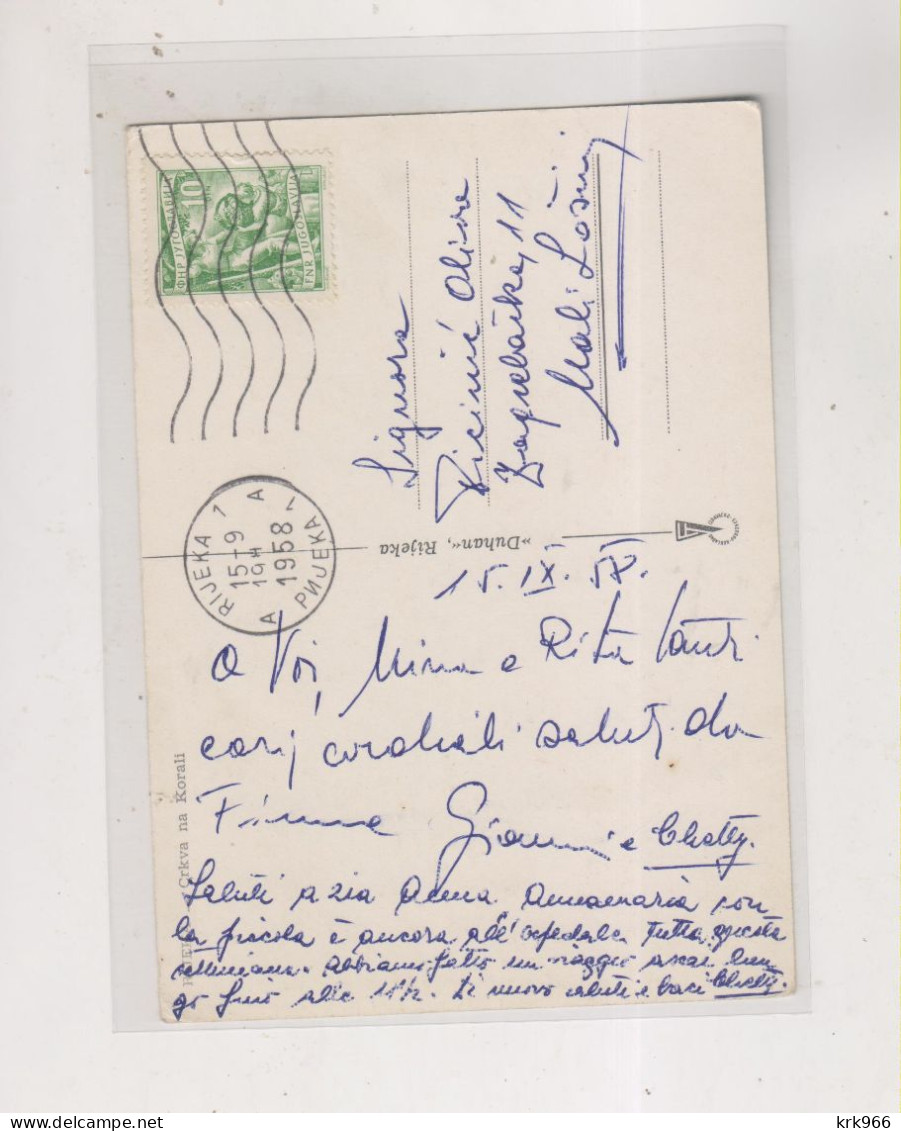 ФНР ЈУГОСЛАВИЈА
10
FNR JUGOSLAVIJA
RIJEKA 1
A A
15-9
19H
1958
РИЈЕКА 1
Signora
Alice
Zagrebačka, 11
Mali Lošinj
»Duhan«, Rijeka
15. IX. 58.
A Voi, Mina e Rita tanti
cari cordiali saluti da
Fiume Gianni e Chetty.
Saluti a zia Anna. Annamaria con
la piccola è ancora all'ospedale tutta questa
settimana. Abbiamo fatto un viaggio assai lun
go fino alle 10½. Di nuovo saluti e baci Chetty.
Crkva na Korali
krk966